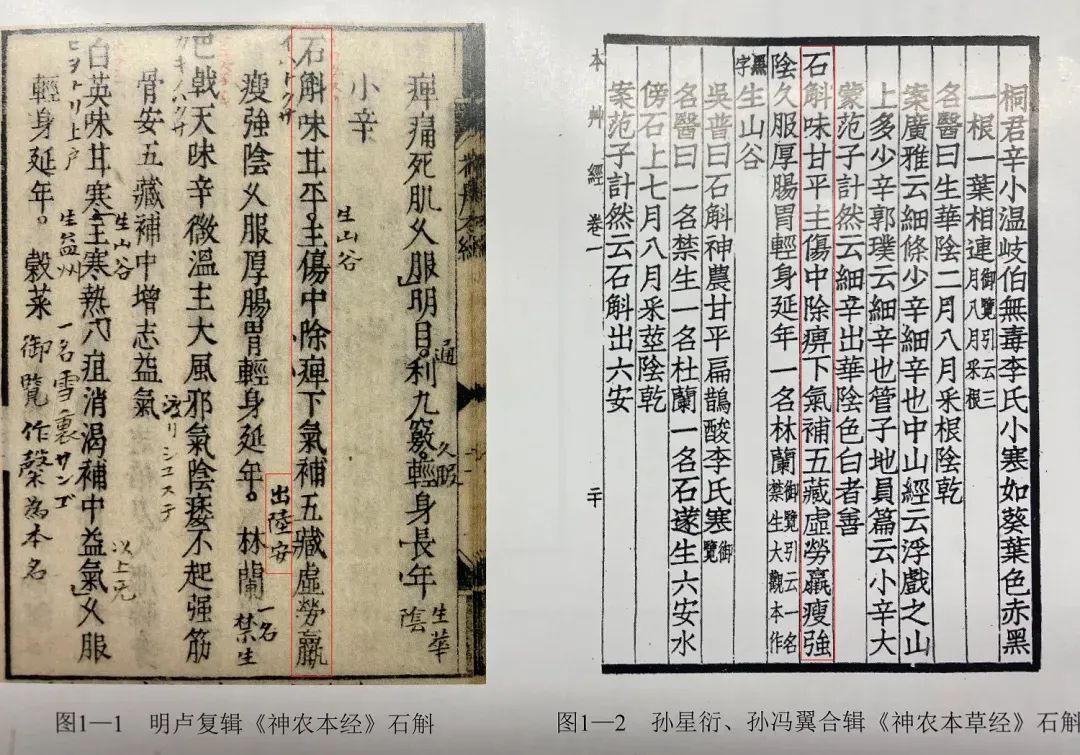 痺痛死肌久服明目利九竅輕身長年
生華
陰
通
久服
小辛
生山谷
石斛味甘平主傷中除痺下氣補五藏虛勞羸
瘦強陰久服厚腸胃輕身延年。林蘭
一名
禁生
出陸安
巴戟天味辛微溫主大風邪氣陰痿不起强筋
骨安五藏補中增志益氣
生山谷
白英味甘寒主寒熱八疽消渴補中益氣久服
以上无
生益州
一名雪裏サンゴ
ヒヲトリ上戶
輕身延年。穀菜
御覽作䕲為本名
桐君辛小溫岐伯無毒李氏小寒如葵葉色赤黑
一根一葉相連御覽引云三月八月采根
名醫曰生華陰二月八月采根陰乾
案廣雅云細條少辛細辛也中山經云浮戲之山
上多少辛郭璞云細辛也管子地員篇云小辛大
蒙范子計然云細辛出華陰色白者善
石斛味甘平主傷中除痹下氣補五藏虛勞羸瘦強
陰久服厚腸胃輕身延年一名林蘭御覽引云一名禁生大觀本作
黑字生山谷
吳普曰石斛神農甘平扁鵲酸李氏寒御覽
名醫曰一名禁生一名杜蘭一名石蓫生六安水
傍石上七月八月采莖陰乾
案范子計然云石斛出六安
本艸經 卷一
二十
图1—1 明卢复辑《神农本经》石斛
图1—2 孙星衍、孙冯翼合辑《神农本草经》石斛